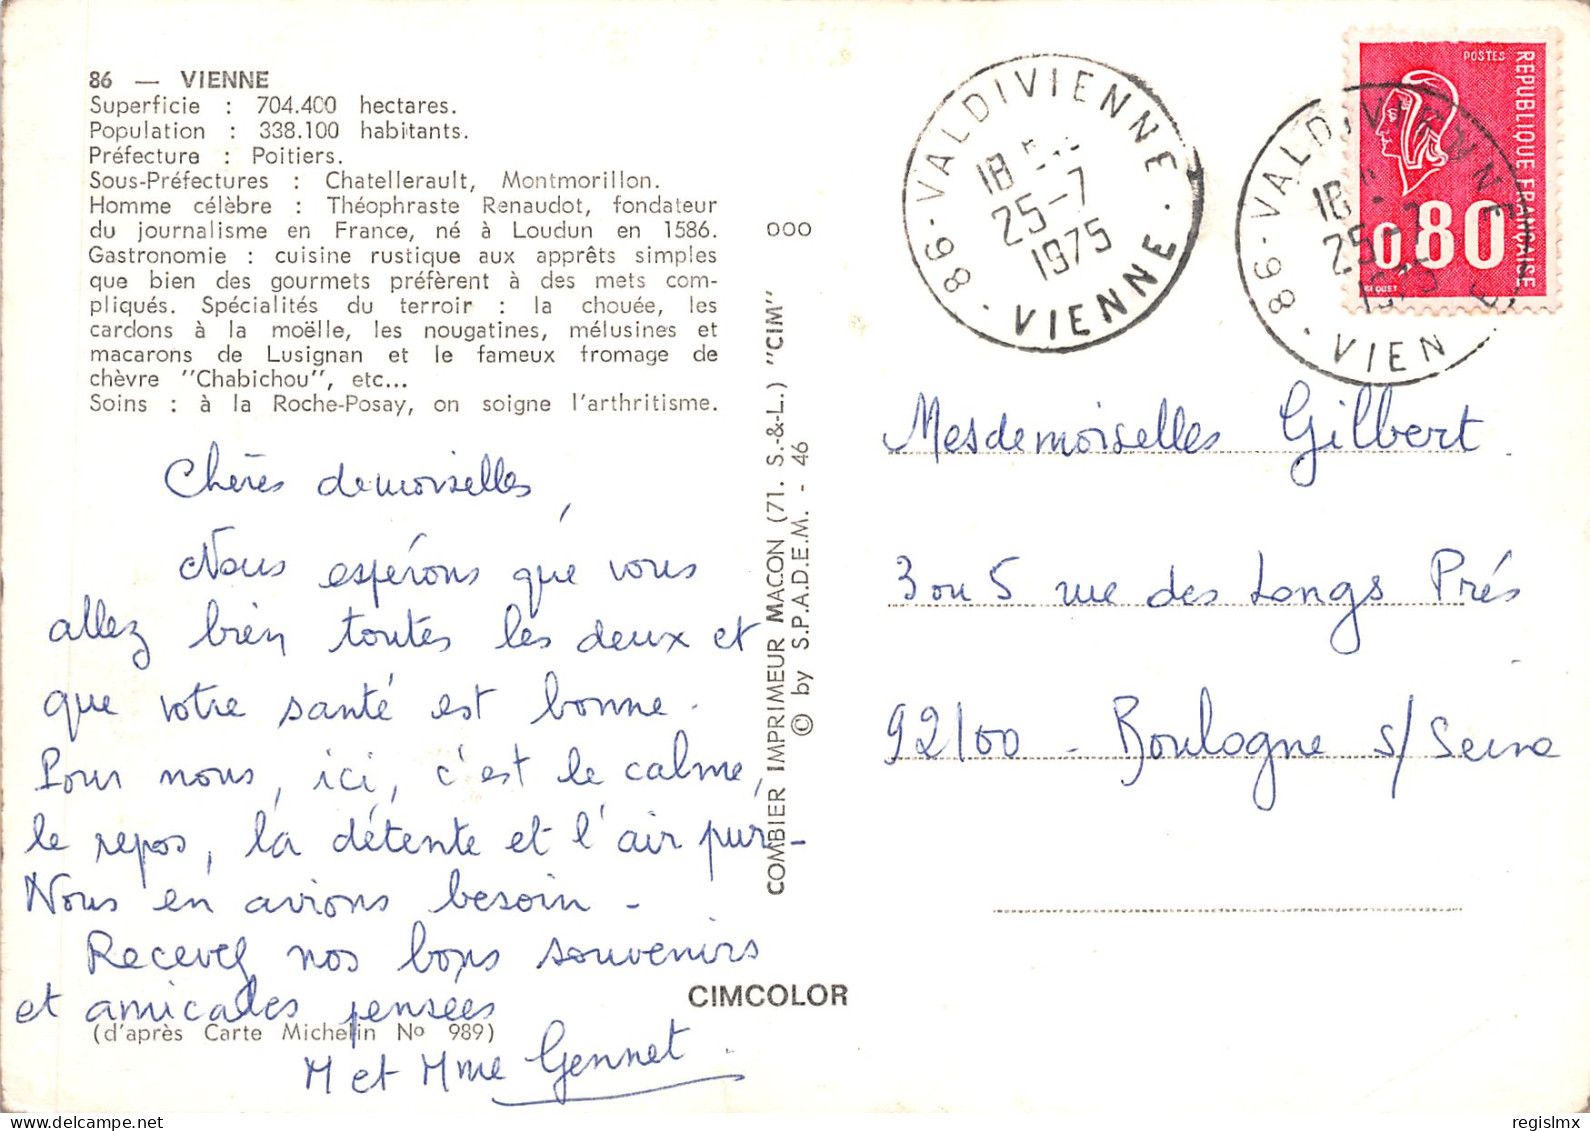 86 — VIENNE
Superficie : 704.400 hectares.
Population : 338.100 habitants.
Préfecture : Poitiers.
Sous-Préfectures : Chatellerault, Montmorillon.
Homme célèbre : Théophraste Renaudot, fondateur
du journalisme en France, né à Loudun en 1586.
Gastronomie : cuisine rustique aux apprêts simples
que bien des gourmets préfèrent à des mets com-
pliqués. Spécialités du terroir : la chouée, les
cardons à la moëlle, les nougatines, mélusines et
macarons de Lusignan et le fameux fromage de
chèvre "Chabichou", etc...
Soins : à la Roche-Posay, on soigne l'arthritisme.
Chères demoiselles,
Nous espérons que vous
allez bien toutes les deux et
que votre santé est bonne.
Pour nous, ici, c'est le calme,
le repos, la détente et l'air pur -
Nous en avions besoin -
Recevez nos bons souvenirs
et amicales pensées
(d'après Carte Michelin No 989)
M et Mme Gennet.
OOO
COMBIER IMPRIMEUR MACON (71. S.-&-L.) "CIM"
© by S.P.A.D.E.M. - 46
CIMCOLOR
86 - VALDIVIENNE
18
25-7
1975
VIENNE
86 - VALDIVIENNE
18
25-7
1975
VIENNE
POSTES
REPUBLIQUE FRANÇAISE
0,80
BEQUET
Mesdemoiselles Gilbert
3 ou 5 rue des Longs Prés
92100 - Boulogne s/ Seine
regislmx